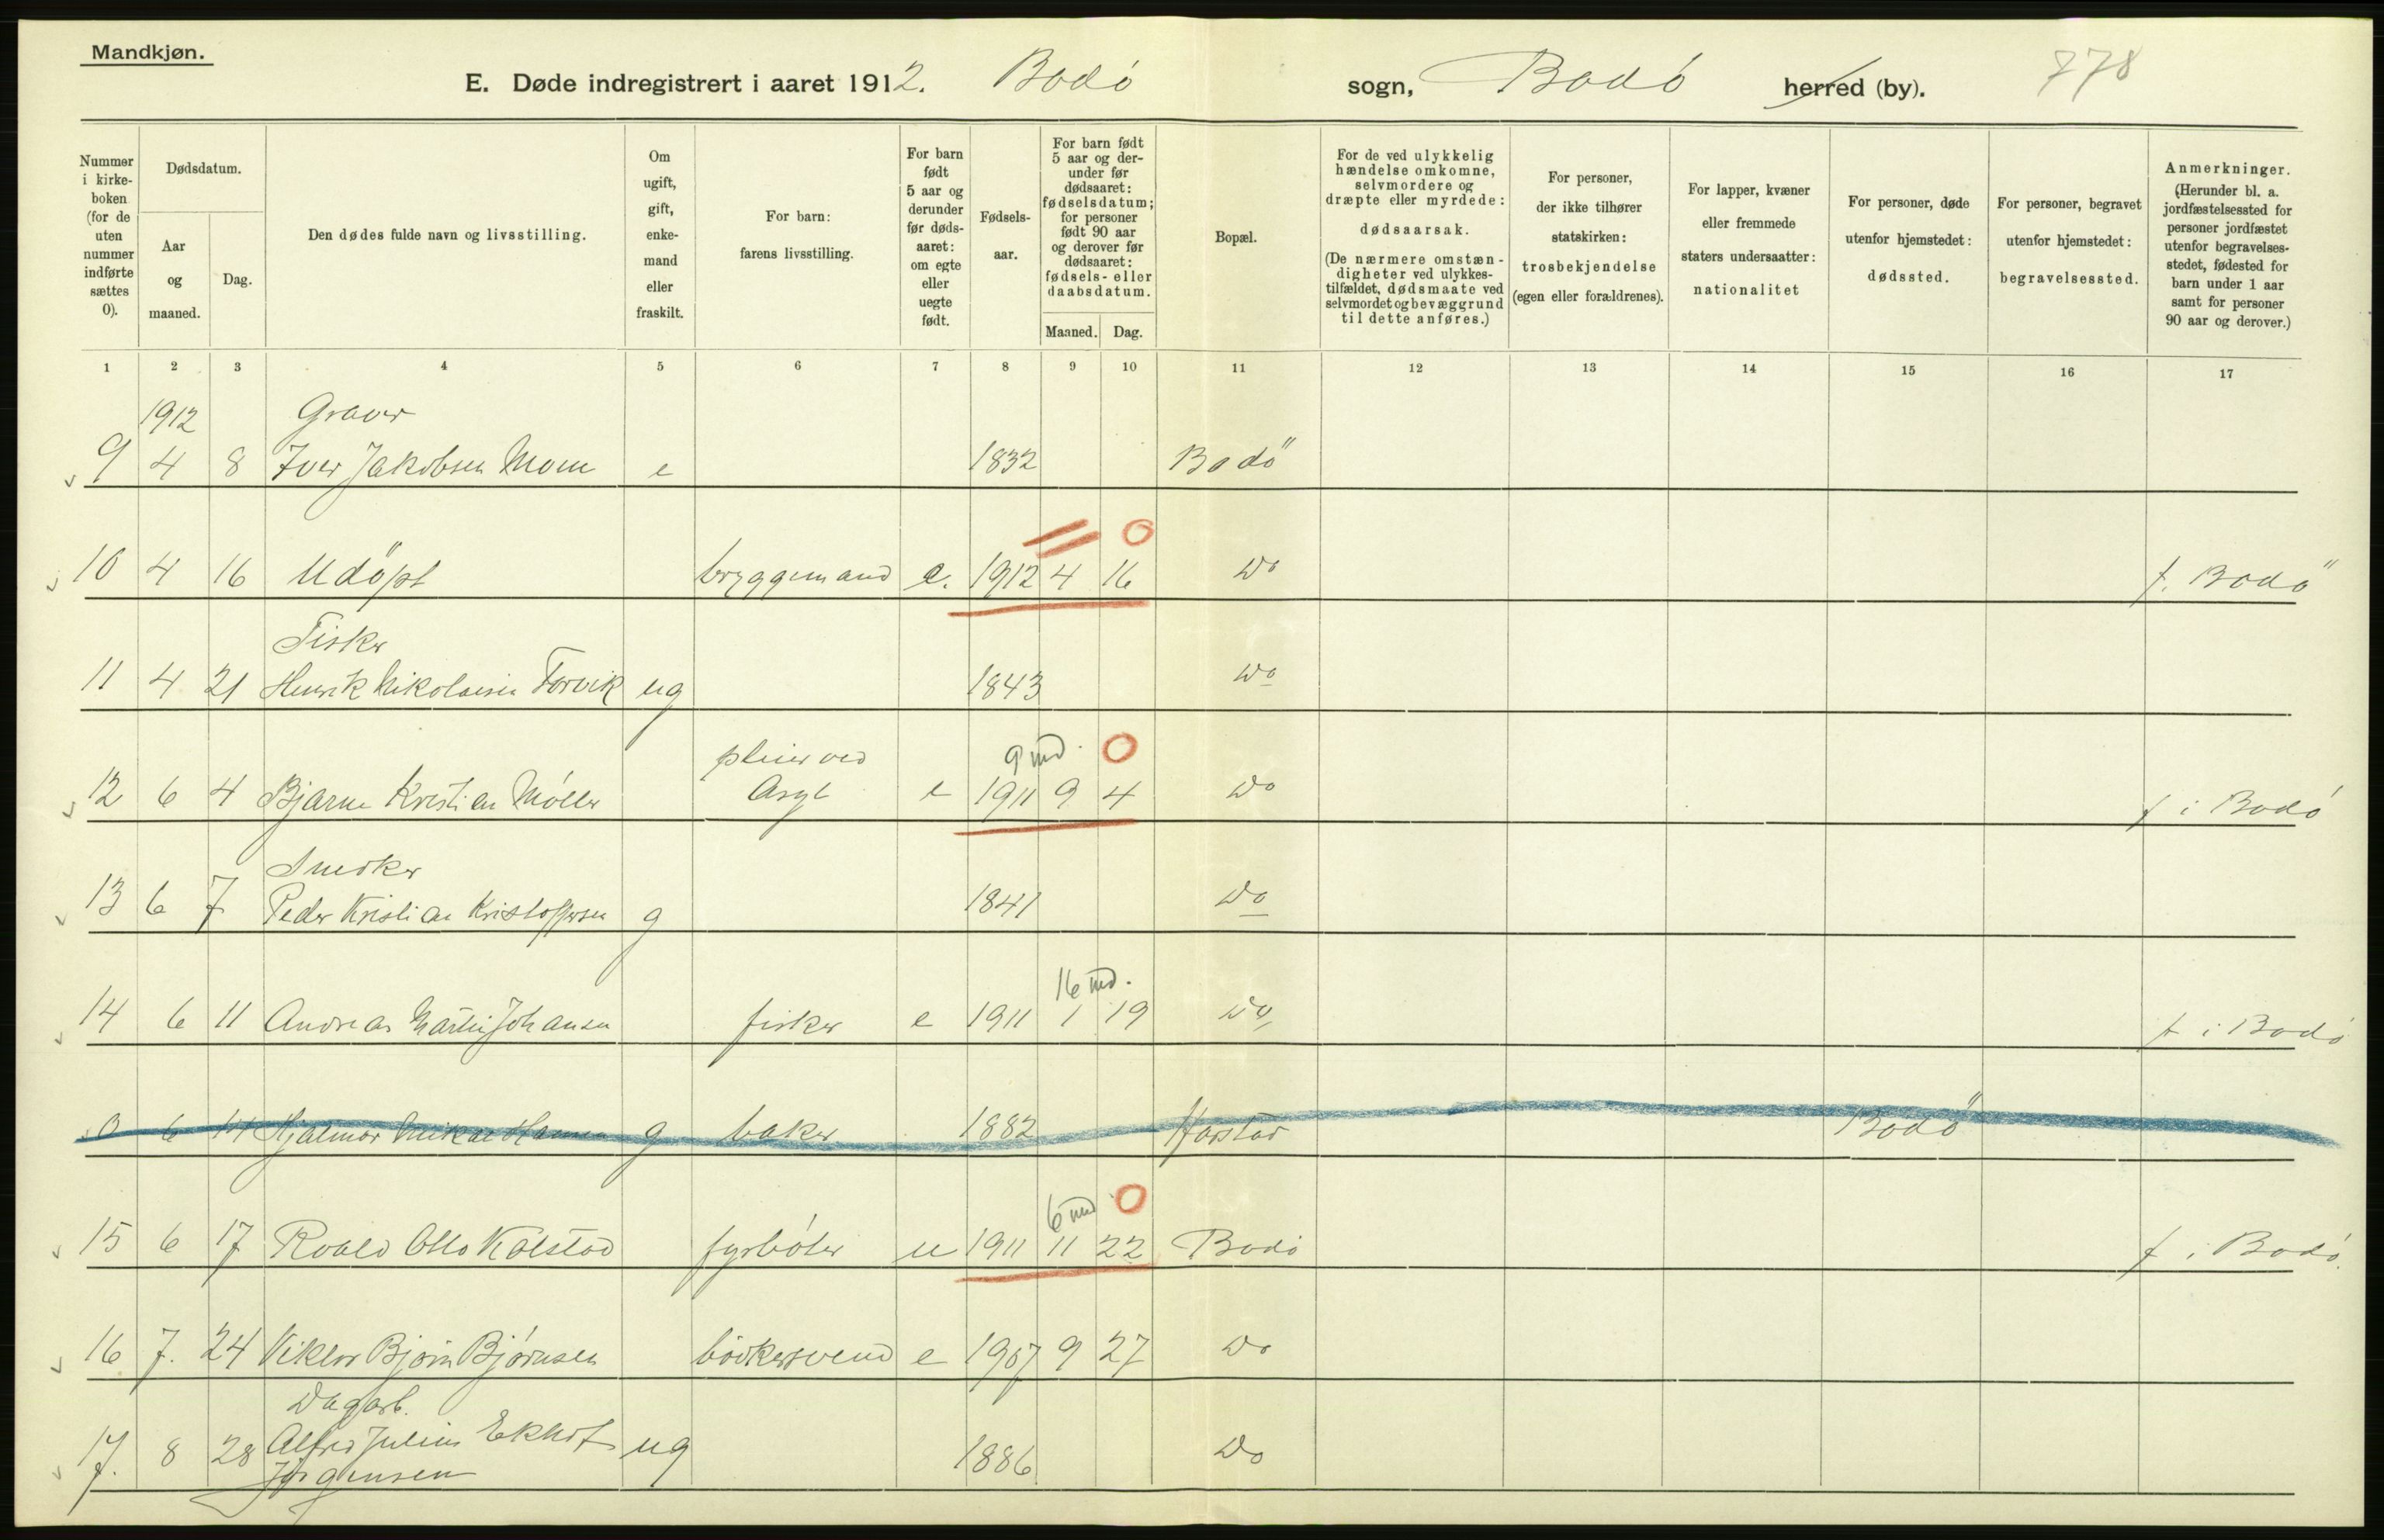 Mandkjøn.
E. Døde indregistrert i aaret 1912. Bodó sogn, Bodó herred (by). 778
Nummer i kirke- boken (for de uten nummer indførte sættes 0).
Dødsdatum.
Aar og maaned.
Dag.
Den dødes fulde navn og livsstilling.
Om ugift, gift, enke- mand eller fraskilt.
For barn: farens livsstilling.
For barn født 5 aar og derunder før døds- aaret: om egte eller uegte født.
Fødsels- aar.
For barn født 5 aar og der- under før dødsaaret: fødselsdatum; for personer født 90 aar og derover før dødsaaret: fødsels- eller daabsdatum.
Maaned. Dag.
Bopæl.
For de ved ulykkelig hændelse omkomne, selvmordere og dræpte eller myrdede: dødsaarsak. (De nærmere omstæn- digheter ved ulykkes- tilfældet, dødsmaate ved selvmordet og bevæggrund til dette anføres.)
For personer, der ikke tilhører statskirken: trosbekjendelse (egen eller forældrenes).
For lapper, kvæner eller fremmede staters undersaatter: nationalitet
For personer, døde utenfor hjemstedet: dødssted.
For personer, begravet utenfor hjemstedet: begravelsessted.
Anmerkninger. (Herunder bl. a. jordfæstelsessted for personer jordfæstet utenfor begravelses- stedet, fødested for barn under 1 aar samt for personer 90 aar og derover.)
1 2 3 4 5 6 7 8 9 10 11 12 13 14 15 16 17
1912 Graver
9 4 8 Iver Jakobsen Moen e 1832 Bodö
0
10 4 16 Udöpt bryggemand e. 1912 4 16 Do f. Bodö
Fisker
11 4 21 Henrik Nikolaisen Forvik ug 1843 Do
pleier ved 9 md. 0
12 6 4 Bjarne Kristian Móller Asyl e 1911 9 4 Do f i Bodó
Snedker
13 6 7 Peder Kristian Kristoffersen g 1841 Do
16 md.
14 6 11 Andreas Martin Johansen fisker e 1911 1 19 Do f i Bodó
0 6 14 Hjalmar Mikal Hansen g baker 1882 Harstad Bodö
6 md 0
15 6 17 Roald Otto Kolstad fyrbóter u 1911 11 22 Bodó f i Bodó.
16 7. 24 Viktor Bjørn Bjórnsen bódkersvend e 1907 9 27 Do
Dagarb.
17. 8 28 Alfred Julius Ekhof ug 1886 Do
Jørgensen